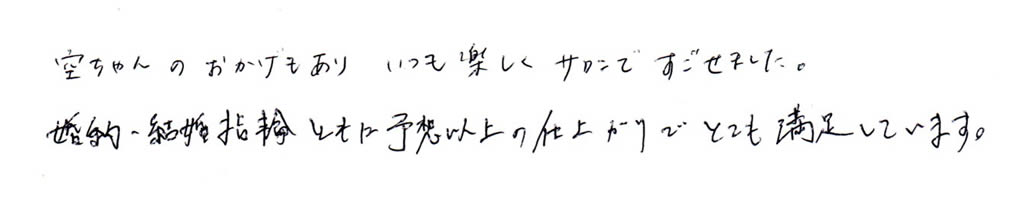 空ちゃんのおかげもあり いつも楽しくサロンですごせました。
婚約・結婚指輪ともに予想以上の仕上がりでとても満足しています。